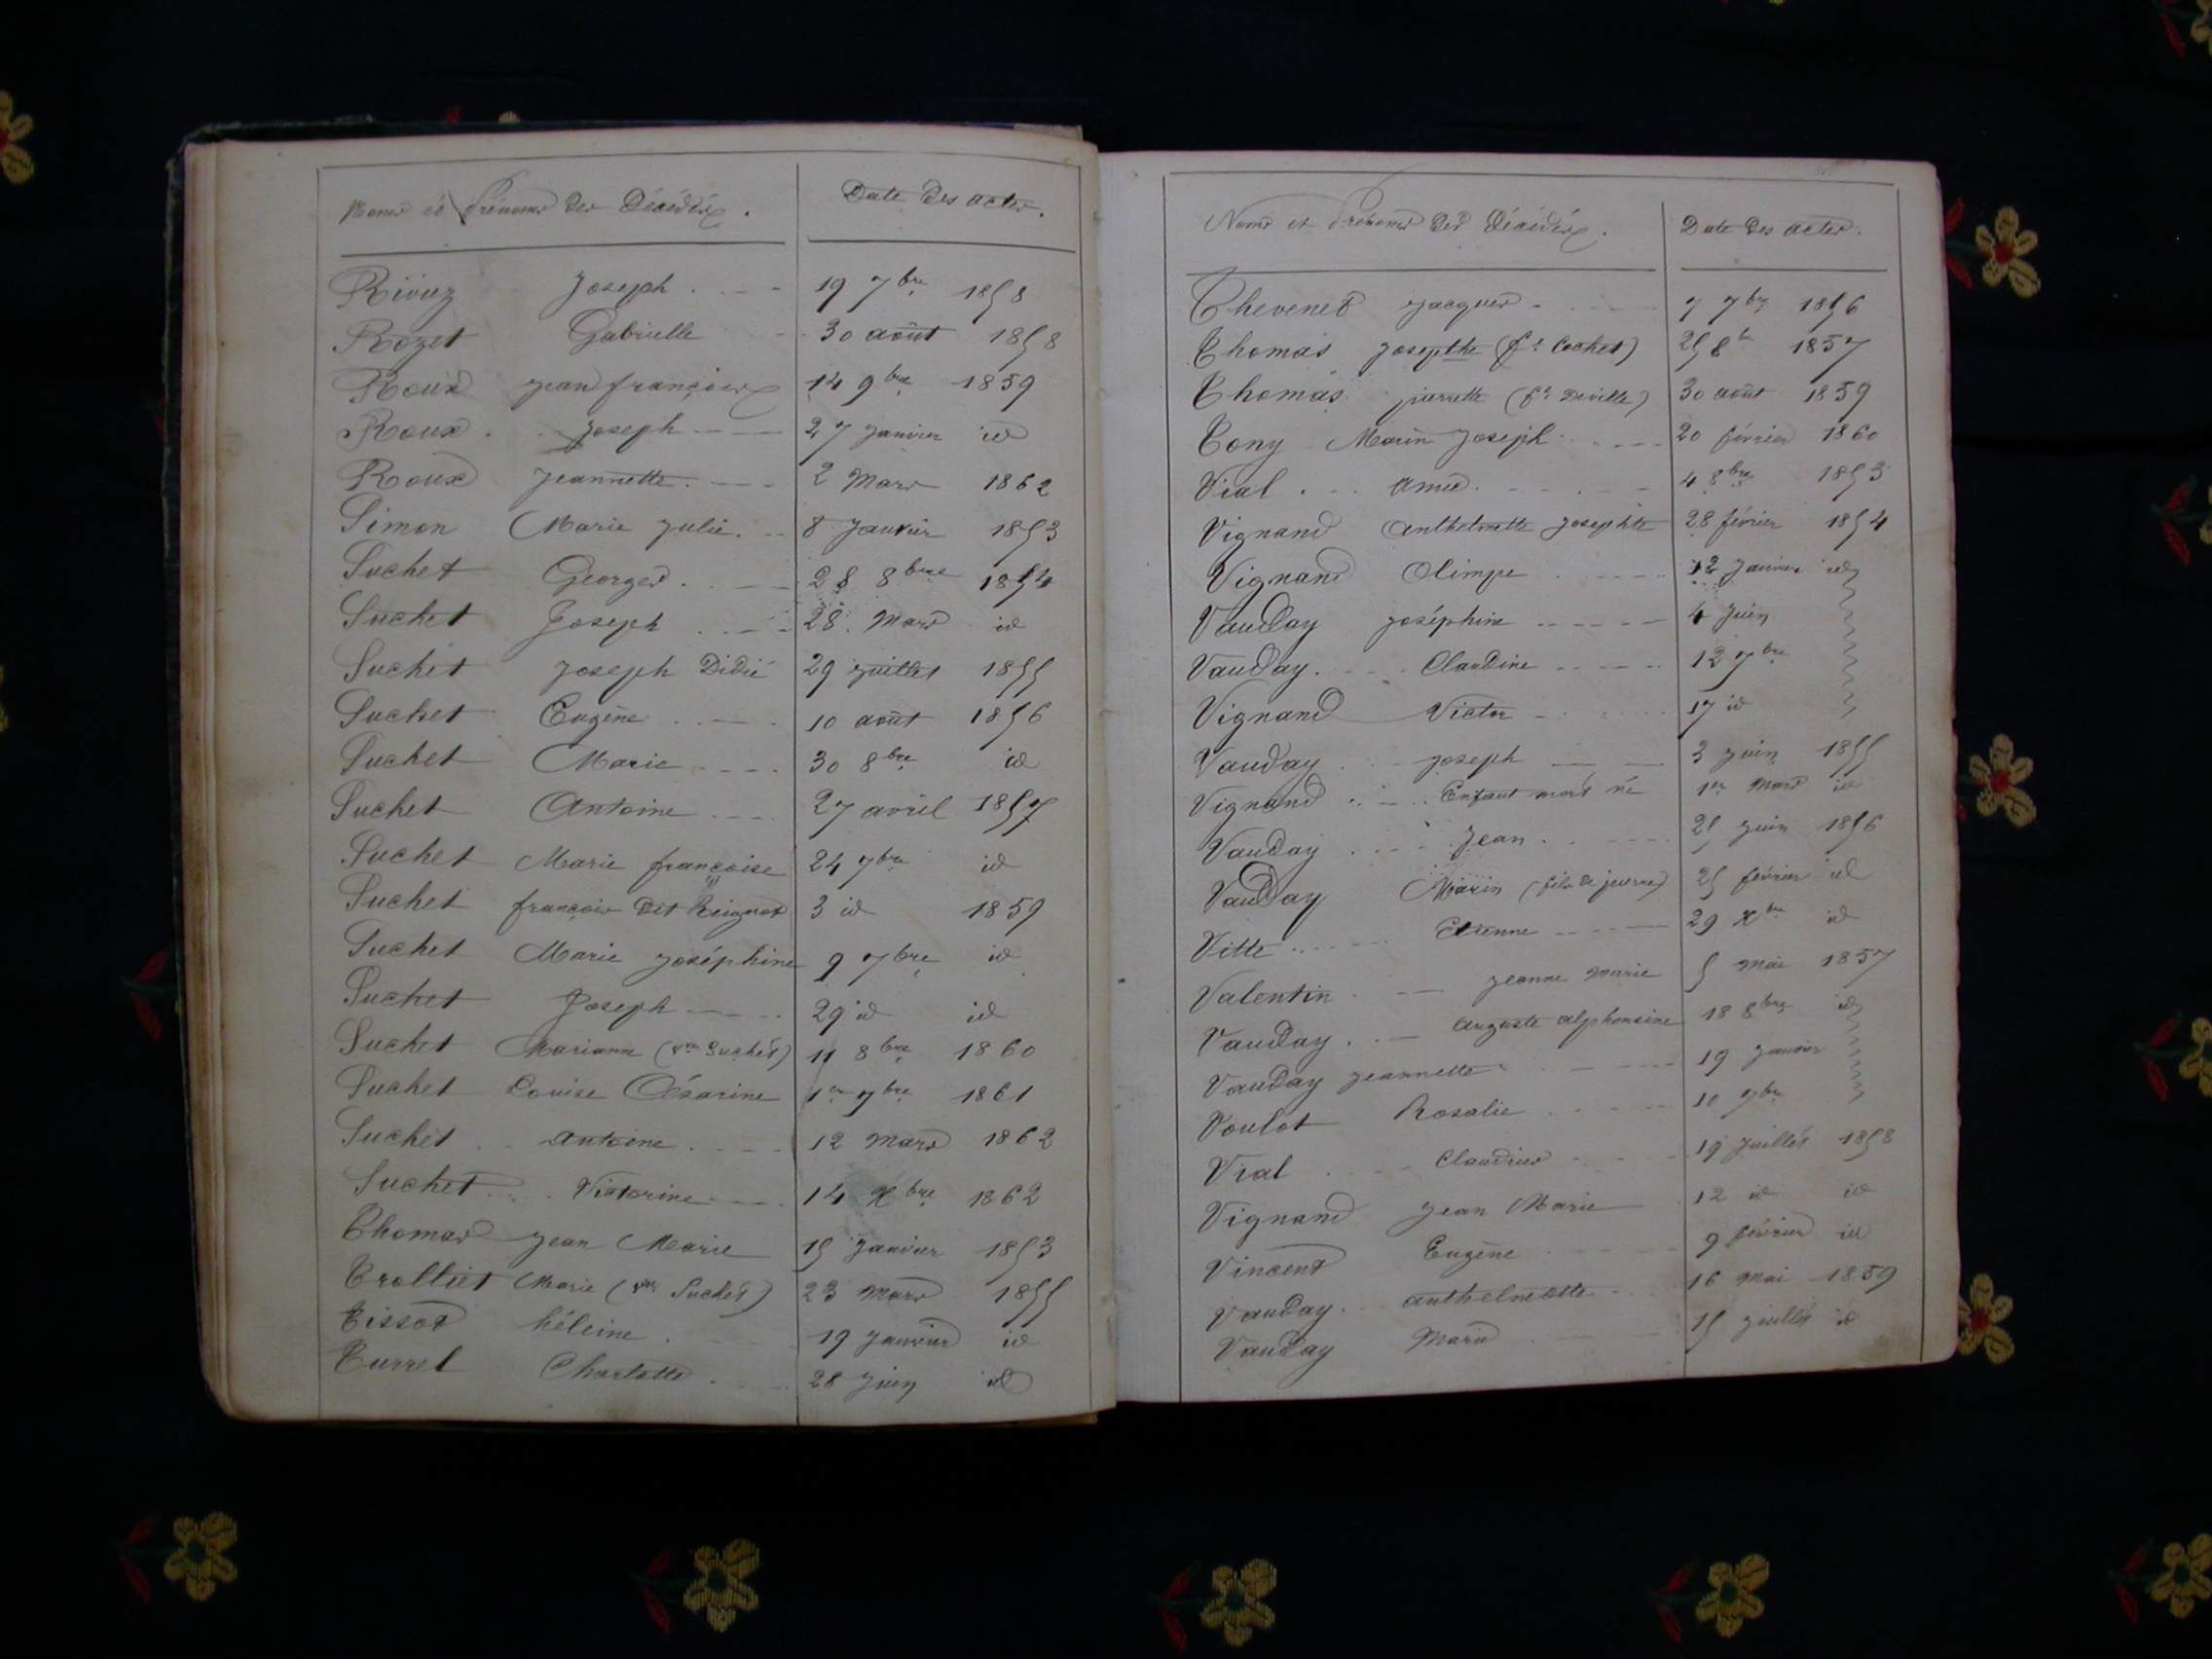 Noms et Prénoms des Décédés. Date des actes.
Rivuz Joseph 19 7bre 1858
Rozet Gabrielle 30 août 1858
Roux jean françois 14 9bre 1859
Roux Joseph 27 janvier id
Roux Jeannette 2 Mars 1862
Simon Marie Julie 8 Janvier 1853
Suchet Georges 28 8bre 1854
Suchet Joseph 28 Mars id
Suchet Joseph Didié 29 juillet 1855
Suchet Eugène 10 août 1856
Suchet Marie 30 8bre id
Suchet Antoine 27 avril 1857
Suchet Marie françoise 24 7bre id
Suchet françois dit 3 id 1859
Suchet Marie Joséphine 9 7bre id
Suchet Joseph 29 id id
Suchet Marianne (vve Suchet) 11 8bre 1860
Suchet Louise Césarine 1er 7bre 1861
Suchet Antoine 12 Mars 1862
Suchet Victorine 14 Xbre 1862
Thomas Jean Marie 15 Janvier 1853
Trolliet Marie (vve Suchet) 23 Mars 1855
Tissot héleine 19 Janvier id
Turrel Charlotte 28 Juin id
Noms et Prénoms des Décédés. Date des actes.
Thevenet Jacques 7 7bre 1856
Thomas Josepthe (fe Cochet) 25 8b 1857
Thomas pierrette (fe Deville) 30 août 1859
Tony Marin Joseph 20 février 1860
Vial Amé 4 8bre 1853
Vignand Anthelmette Josephte 28 février 1854
Vignand Olimpe 12 Janvier id
Vauday Joséphine 4 Juin
Vauday Claudine 12 7bre
Vignand Victor 17 id
Vauday Joseph 3 juin 1855
Vignand Enfant mort né 1er Mars id
Vauday Jean 25 juin 1856
Vauday Marin (fils de pierre) 25 février id
Vitte Etienne 29 Xbre id
Valentin Jeanne Marie 5 Mai 1857
Vauday Auguste alphonsine 18 8bre id
Vauday Jeannette 19 Janvier
Voulot Rosalie 7bre
Vial Claudius 19 Juillet 1858
Vignand Jean Marie 12 id id
Vincent Eugène 9 février id
Vauday anthelmette 16 Mai 1859
Vauday Marie 15 juillet id